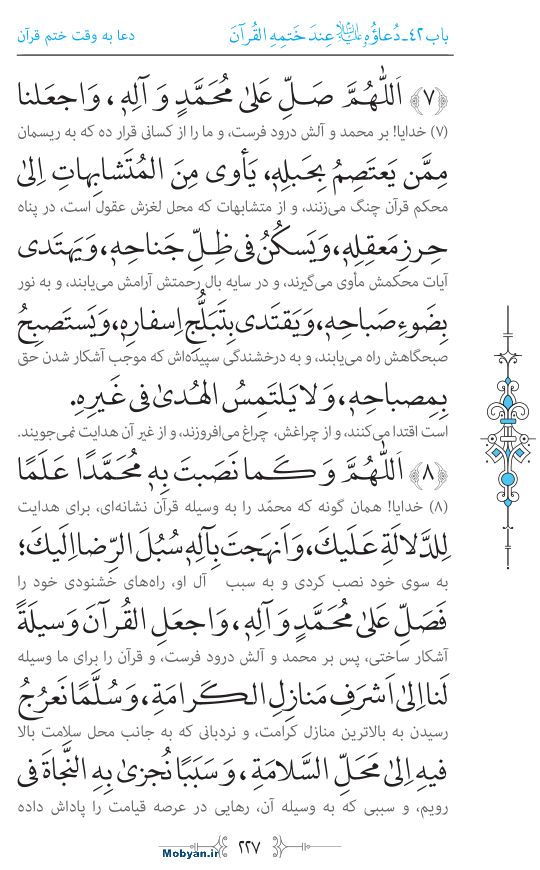 باب ۴۲ـ دُعاؤُهُ عِندَ خَتمِهِ القُرآنَ
دعا به وقت ختم قرآن
﴿۷﴾ اَللّٰهُمَّ صَلِّ عَلىٰ مُحَمَّدٍ وَ آلِهِ، وَ اجعَلنا
(۷) خدایا! بر محمد و آلش درود فرست، و ما را از کسانی قرار ده که به ریسمان
مِمَّن یَعتَصِمُ بِحَبلِهِ، یَأوى مِنَ المُتَشابِهاتِ اِلىٰ
محکم قرآن چنگ می‌زنند، و از متشابهات که محل لغزش عقول است، در پناه
حِرزِ مَعقِلِهِ، وَ یَسکُنُ فى ظِلِّ جَناحِهِ، وَ یَهتَدى
آیات محکمش مأوی می‌گیرند، و در سایه بال رحمتش آرامش می‌یابند، و به نور
بِضَوءِ صَباحِهِ، وَ یَقتَدى بِتَبَلُّجِ اِسفارِهِ، وَ یَستَصبِحُ
صبحگاهش راه می‌یابند، و به درخشندگی سپیده‌اش که موجب آشکار شدن حق
بِمِصباحِهِ، وَ لا یَلتَمِسُ الهُدىٰ فى غَیرِهِ.
است اقتدا می‌کنند، و از چراغش، چراغ می‌افروزند، و از غیر آن هدایت نمی‌جویند.
﴿۸﴾ اَللّٰهُمَّ وَ کَما نَصَبتَ بِهِ مُحَمَّدًا عَلَمًا
(۸) خدایا! همان گونه که محمّد را به وسیله قرآن نشانه‌ای، برای هدایت
لِلدَّلالَةِ عَلَیکَ، وَ اَنهَجتَ بِآلِهِ سُبُلَ الرِّضا اِلَیکَ؛
به سوی خود نصب کردی و به سبب آل او، راه‌های خشنودی خود را
فَصَلِّ عَلىٰ مُحَمَّدٍ وَ آلِهِ، وَ اجعَلِ القُرآنَ وَسیلَةً
آشکار ساختی، پس بر محمد و آلش درود فرست، و قرآن را برای ما وسیله
لَنا اِلىٰ اَشرَفِ مَنازِلِ الکَرامَةِ، وَ سُلَّمًا نَعرُجُ
رسیدن به بالاترین منازل کرامت، و نردبانی که به جانب محل سلامت بالا
فیهِ اِلىٰ مَحَلِّ السَّلامَةِ، وَ سَبَبًا نُجزىٰ بِهِ النَّجاةَ فى
رویم، و سببی که به وسیله آن، رهایی در عرصه قیامت را پاداش داده
۲۲۷
Mobyan.ir